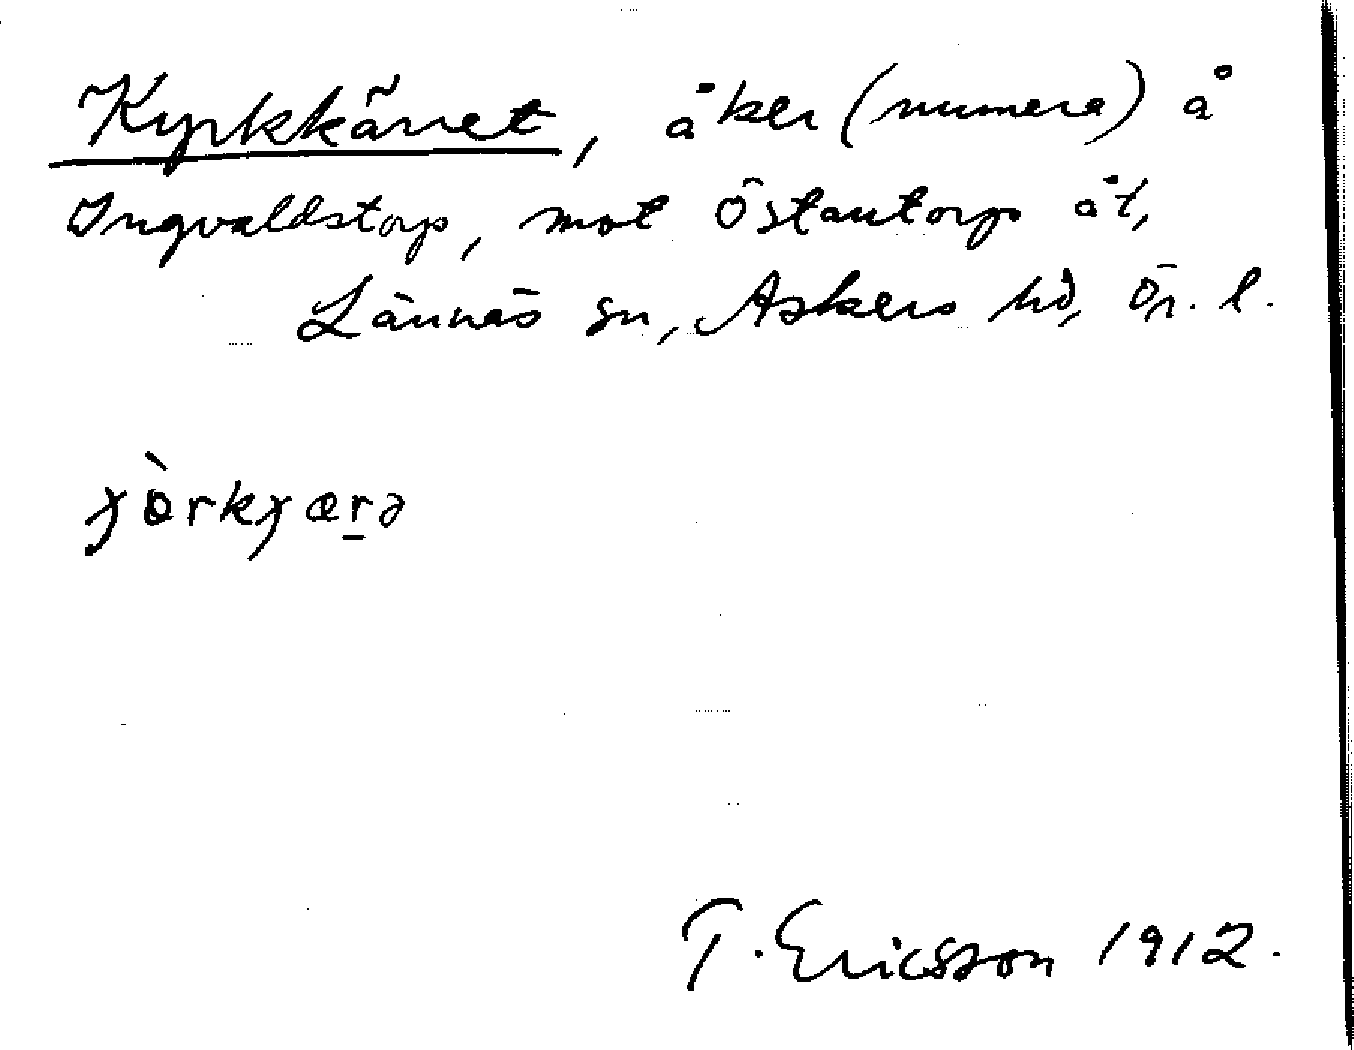 Kyrkkäret, åker (numera) å
Ingvaldstorp, mot Östantorp åt,
Lännäs sn, Askers hd, Ör. l.
T. Ericsson 1912.